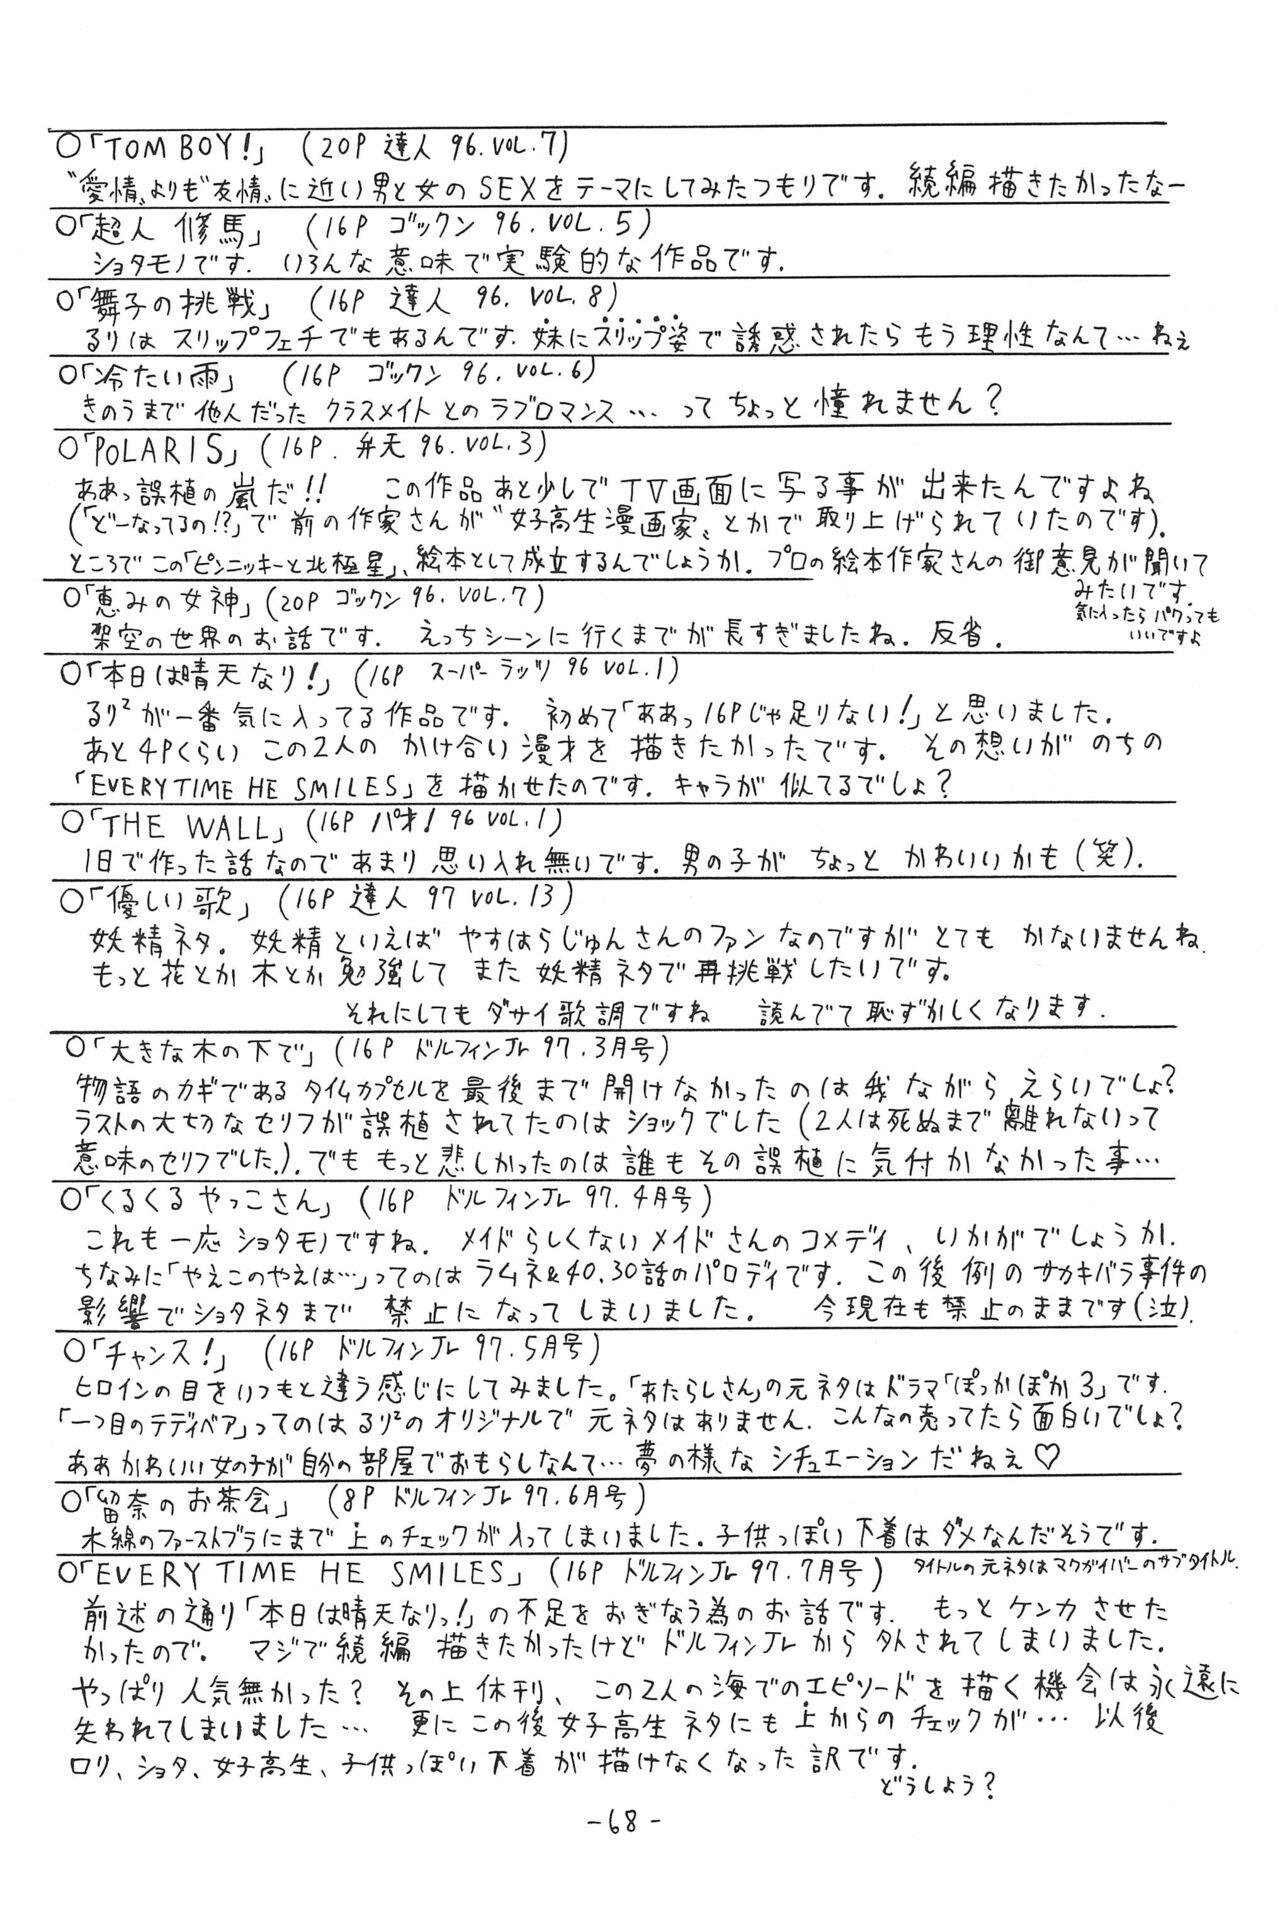 ○「TOM BOY!」 (20P 達人 96. VOL.7)
〝愛情〟よりも〝友情〟に近い男と女のSEXをテーマにしてみたつもりです. 続編描きたかったなー
○「超人 修馬」 (16P ゴックン 96. VOL.5)
ショタモノです. いろんな意味で実験的な作品です.
○「舞子の挑戦」 (16P 達人 96. VOL.8)
るりはスリップフェチでもあるんです. 妹にスリップ姿で誘惑されたらもう理性なんて…ねぇ
○「冷たい雨」 (16P ゴックン 96. VOL.6)
きのうまで他人だったクラスメイトとのラブロマンス…ってちょっと憧れません?
○「POLARIS」(16P. 弁天 96. VOL.3)
ああっ誤植の嵐だ!! この作品あと少しでTV画面に写る事が出来たんですよね
(「どーなってるの!?」で前の作家さんが〝女子高生漫画家〟とかで取り上げられていたのです).
ところでこの「ピンニッキーと北極星」、絵本として成立するんでしょうか. プロの絵本作家さんの御意見が聞いて
みたいです.
気に入ったらパクっても
いいですよ
○「恵みの女神」(20P ゴックン 96. VOL.7)
架空の世界のお話です. えっちシーンに行くまでが長すぎましたね. 反省.
○「本日は晴天なり!」(16P スーパーラッツ 96 VOL.1)
るり²が一番気に入ってる作品です. 初めて「ああっ16Pじゃ足りない!」と思いました.
あと4Pくらいこの2人のかけ合い漫才を描きたかったです. その想いがのちの
「EVERY TIME HE SMILES」を描かせたのです. キャラが似てるでしょ?
○「THE WALL」(16P パオ! 96 VOL.1)
1日で作った話なのであまり思い入れ無いです. 男の子がちょっとかわいいかも(笑).
○「優しい歌」 (16P 達人 97 VOL.13)
妖精ネタ. 妖精といえばやすはらじゅんさんのファンなのですがとてもかないませんね.
もっと花とか木とか勉強してまた妖精ネタで再挑戦したいです.
それにしてもダサイ歌調ですね 読んでて恥ずかしくなります.
○「大きな木の下で」(16P ドルフィンJr 97.3月号)
物語のカギであるタイムカプセルを最後まで開けなかったのは我ながらえらいでしょ?
ラストの大切なセリフが誤植されてたのはショックでした(2人は死ぬまで離れないって
意味のセリフでした.). でももっと悲しかったのは誰もその誤植に気付かなかった事…
○「くるくるやっこさん」(16P ドルフィンJr 97.4月号)
これも一応ショタモノですね. メイドらしくないメイドさんのコメディ、いかがでしょうか.
ちなみに「やえこのやえは…」ってのはラムネ&40.30話のパロディです. この後例のサカキバラ事件の
影響でショタネタまで禁止になってしまいました. 今現在も禁止のままです(泣).
○「チャンス!」 (16P ドルフィンJr 97.5月号)
ヒロインの目をいつもと違う感じにしてみました。「あたらしさん」の元ネタはドラマ「ぽっかぽか3」です.
「一つ目のテディベア」ってのはるり²のオリジナルで元ネタはありません. こんなの売ってたら面白いでしょ?
ああかわいい女の子が自分の部屋でおもらしなんて…夢の様なシチュエーションだねぇ♡
○「留奈のお茶会」 (8P ドルフィンJr 97.6月号)
木綿のファーストブラにまで上のチェックが入ってしまいました. 子供っぽい下着はダメなんだそうです.
○「EVERY TIME HE SMILES」(16P ドルフィンJr 97.7月号) タイトルの元ネタはマクガイバーのサブタイトル.
前述の通り「本日は晴天なりっ!」の不足をおぎなう為のお話です. もっとケンカさせた
かったので. マジで続編描きたかったけどドルフィンJrから外されてしまいました.
やっぱり人気無かった? その上休刊、この2人の海でのエピソードを描く機会は永遠に
失われてしまいました… 更にこの後女子高生ネタにも上からのチェックが… 以後
ロリ、ショタ、女子高生、子供っぽい下着が描けなくなった訳です.
どうしよう?
-68-